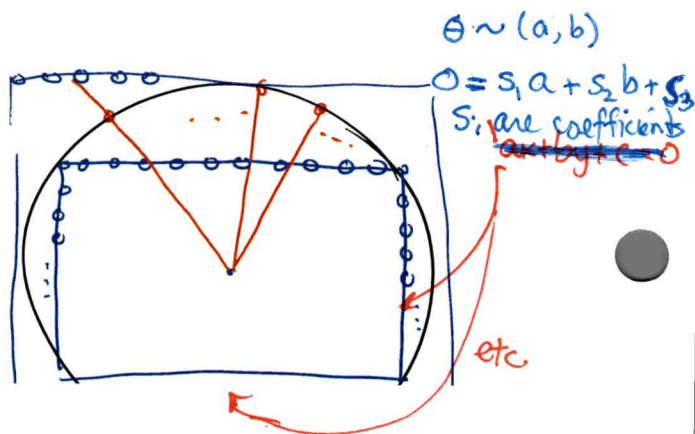 θ ~ (a, b)
0 = s₁ a + s₂ b + s₃
sᵢ are coefficients
ax+by+c=0
etc